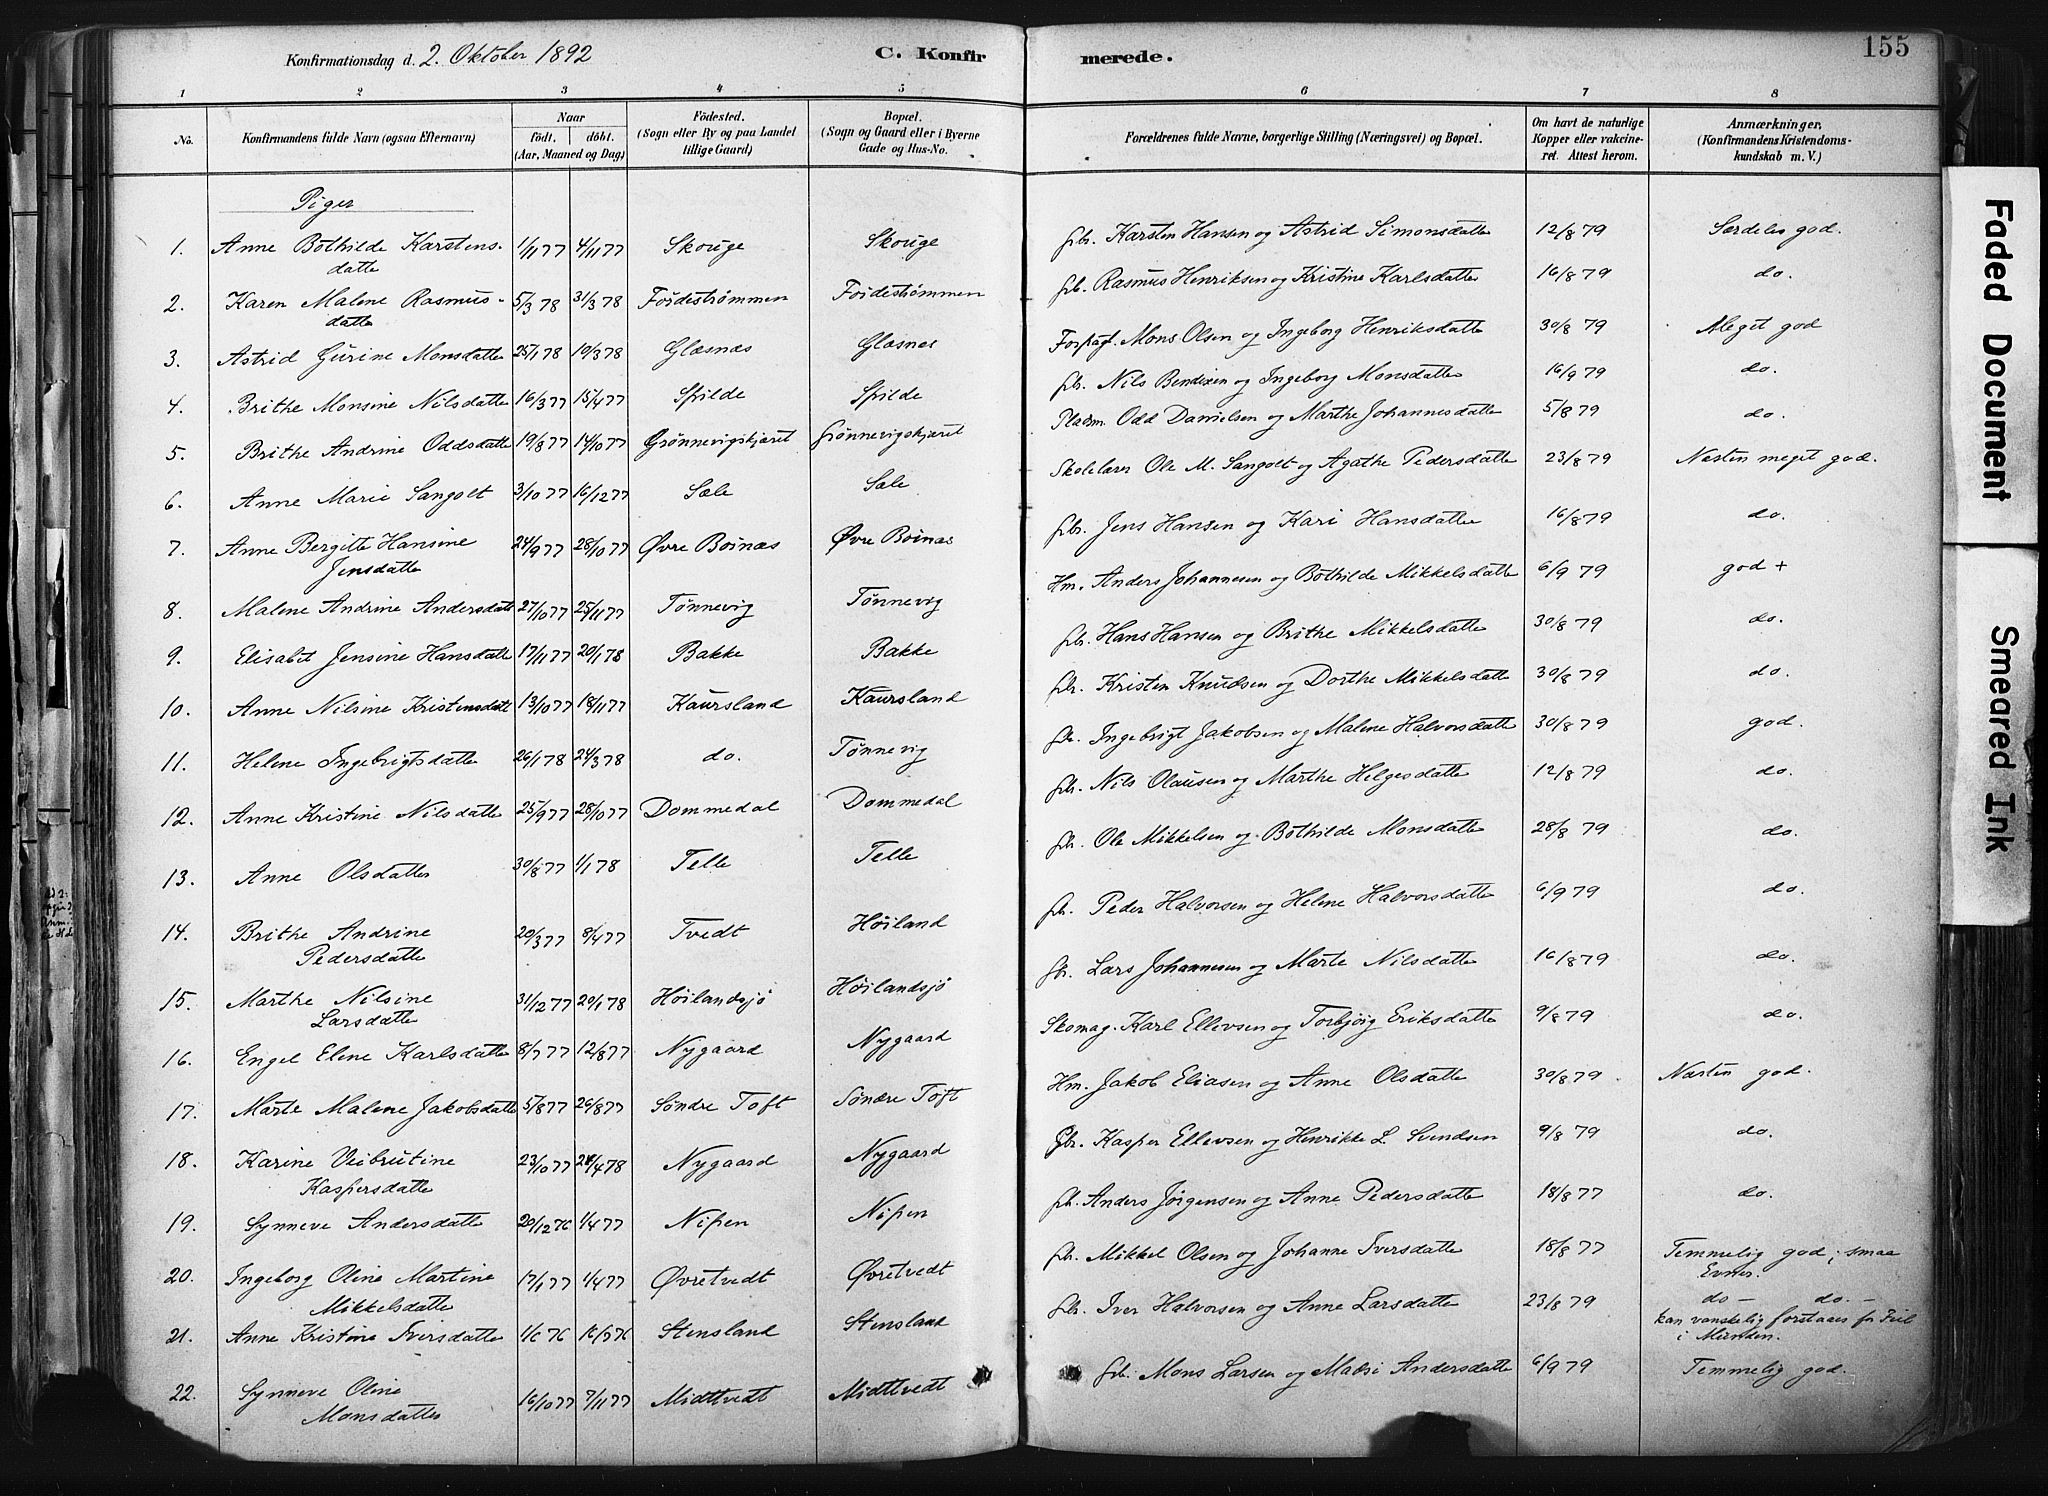 Konfirmationsdag d. 2. Oktober 1892 C. Konfir merede. 155
1 2 3 4 5 6 7 8
No. Konfirmandens fulde Navn (ogsaa Efternavn) Naar födt. döbt. (Aar, Maaned og Dag) Födested. (Sogn eller By og paa Landet tillige Gaard) Bopæl. (Sogn og Gaard eller i Byerne Gade og Hus-No. Forældrenes fulde Navne, borgerlige Stilling (Næringsvei) og Bopæl. Om havt de naturlige Kopper eller vakcineret. Attest herom. Anmærkninger. (Konfirmandens Kristendomskundskab m. V.)
Piger
1. Anne Bothilde Karstens-datter 1/11 77 4/11 77 Skouge Skouge gbr. Karsten Hansen og Astrid Simonsdatter 12/8 79 Særdeles god.
2. Karen Malene Rasmus-datter 5/3 78 31/3 78 Foldestrømmen Foldestrømmen gbr. Rasmus Henriksen og Kristine Karlsdatter 16/8 79 do.
3. Astrid Gurine Monsdatter 25/1 78 10/3 78 Glæsnæs Glæsnes Forpagt. Mons Olsen og Ingeborg Henriksdatter 30/8 79 Meget god
4. Brithe Monsine Nilsdatter 16/3 77 15/4 77 Spilde Spilde gbr. Nils Bendixen og Ingeborg Monsdatter 16/9 79 do.
5. Brithe Andrine Oddsdatter 19/8 77 14/10 77 Grønnevigskjæret Grønnevigskjæret Pladsm. Odd Danielsen og Marthe Johannesdatter 5/8 79 do.
6. Anne Marie Sangolt 3/10 77 16/12 77 Sæle Sæle Skolelærer Ole M. Sangolt og Agathe Pedersdatter 23/8 79 Næsten meget god.
7. Anne Bergitte Hansine Jensdatter 24/9 77 28/10 77 Øvre Boinæs Øvre Boinæs gbr. Jens Hansen og Kari Hansdatter 16/8 79 do.
8. Malene Andrine Andersdatt 27/10 77 25/11 77 Tønnevig Tønnevig Hm. Anders Johannesen og Bothilde Mikkelsdatter 6/9 79 god +
9. Elisabet Jensine Hansdatter 17/11 77 20/1 78 Bakke Bakke gbr. Hans Hansen og Brithe Mikkelsdatter 30/8 79 do.
10. Anne Nilsine Kristensdatt 13/10 77 18/11 77 Kaursland Kaursland gbr. Kristen Knudsen og Dorthe Mikkelsdatter 30/8 79 do.
11. Helene Ingebrigtsdatter 26/1 78 24/3 78 do. Tønnevig gbr. Ingebrigt Jakobsen og Malene Halvorsdatter 30/8 79 god.
12. Anne Kristine Nilsdatter 25/9 77 28/10 77 Dommedal Dommedal gbr. Nils Olausen og Marthe Helgesdatter 12/8 79 do.
13. Anne Olsdatter 30/8 77 1/1 78 Telle Telle gbr. Ole Mikkelsen og Bothilde Monsdatter 28/8 79 do.
14. Brithe Andrine Pedersdatter 20/3 77 8/4 77 Tvedt Høiland gbr. Peder Halvorsen og Helene Halvorsdatter 6/9 79 do.
15. Marthe Nilsine Larsdatter 31/12 77 20/1 78 Høilandsjø Høilandsjø gbr. Lars Johannesen og Marte Nilsdatter 16/8 79 do.
16. Engel Elene Karlsdatter 8/7 77 12/8 77 Nygaard Nygaard Skomag. Karl Ellevsen og Torbjørg Eriksdatter 9/8 79 do.
17. Marte Malene Jakobsdatter 5/8 77 26/8 77 Søndre Toft Søndre Toft Hm. Jakob Eliasen og Anne Olsdatter 30/8 79 Næsten god.
18. Karine Veibrutine Kaspersdatter 23/10 77 /4 78 Nygaard Nygaard Gbr. Kasper Ellevsen og Henrikke L. Svendsen 9/8 79 do.
19. Synneve Andersdatter 20/12 76 1/4 77 Nipen Nipen gbr. Anders Jørgensen og Anne Pedersdatter 18/8 77 do.
20. Ingeborg Oline Martine Mikkelsdatter 17/1 77 1/4 77 Øvretvedt Øvretvedt gbr. Mikkel Olsen og Johanne Iversdatter 18/8 77 Temmelig god; smaa Evner.
21. Anne Kristine Iversdatter 76 76 Stensland Stensland gbr. Iver Halvorsen og Anne Larsdatter 23/8 79 do – do. – kan vanskelig forstaaes for Feil i Munden.
22. Synneve Oline Monsdatter 16/10 77 7/11 77 Midttvedt Midttvedt gbr. Mons Larsen og Madsi Andersdatter 6/9 79 Temmelig god.
Faded Document
Smeared Ink